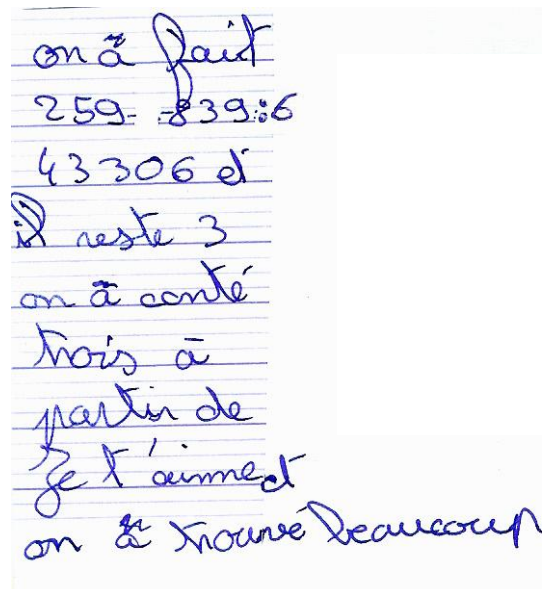 on à fait
259-839:6
43306 et
il reste 3
on à conté
trois à
partir de
Je t'aime et
on à trouvé beaucoup